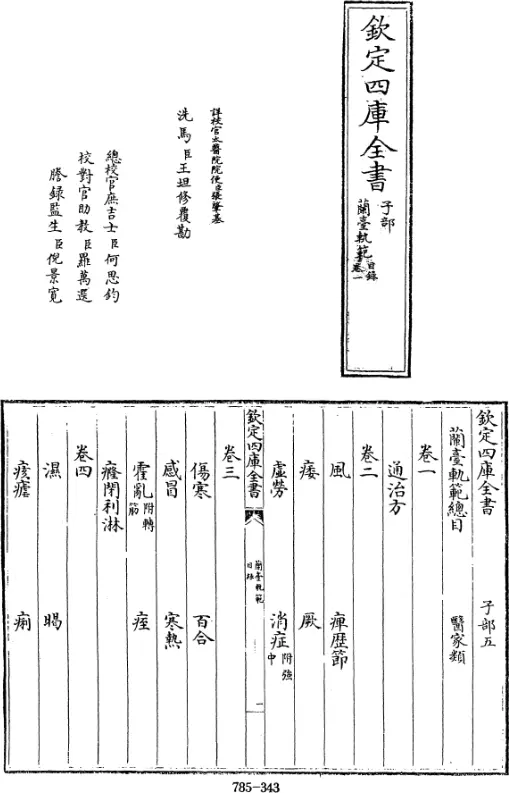 欽定四庫全書
子部
蘭臺軌範
目錄
卷一
詳校官太醫院院使臣張肇基
洗馬臣王坦修覆勘
總校官庶吉士臣何思鈞
校對官助教臣羅萬選
謄錄監生臣倪景寬
欽定四庫全書
子部五
蘭臺軌範總目
醫家類
卷一
通治方
卷二
風 痺歷節
痿 厥
虛勞 消症附強中
欽定四庫全書
蘭臺軌範
目錄
一
卷三
傷寒 百合
感冒 寒熱
霍亂附轉筋 痓
癃閉利淋
卷四
濕 暍
痎瘧 痢
785-343